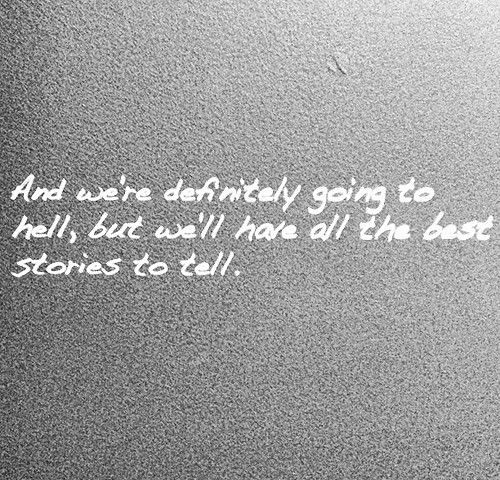 And we're definitely going to
hell, but we'll have all the best
stories to tell.